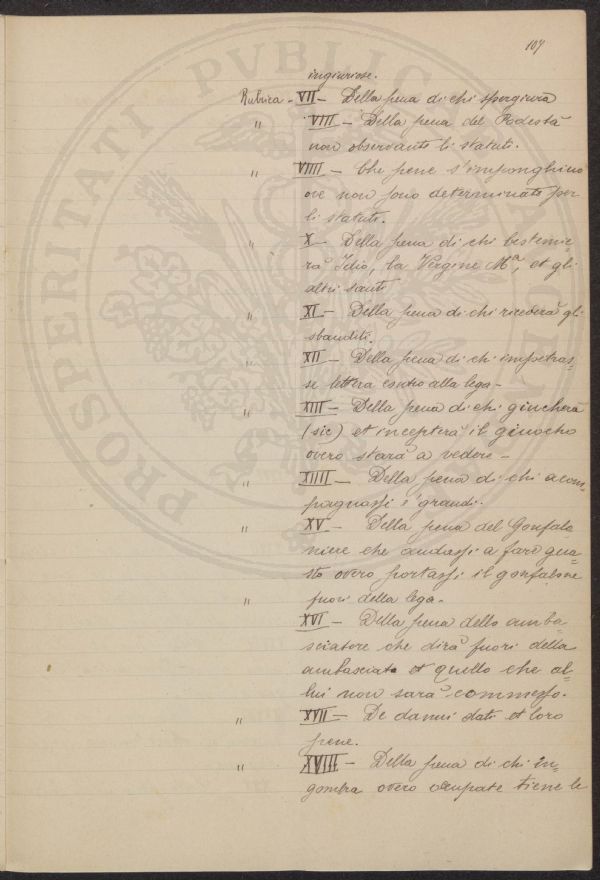 107
ingiuriose.
Rubrica - VII - Della pena di chi spergiura
" VIII - Della pena del Podestà
non observante li statuti.
" VIIII - Che pene s'imponghino
ove non sono determinate per
li statuti.
" X - Della pena di chi bestemie=
rà Idio, la Vergine Mª, et gli
altri santi
" XI - Della pena di chi ricederà gli
sbanditi.
" XII - Della pena di chi impetras=
se lettera contro alla lega -
" XIII - Della pena di chi giucherà
(sic) et incepterà il giuocho
overo starà a vedere -
" XIIII - Della pena di chi acom=
pagnassi i grandi.
" XV - Della pena del Gonfalo=
niere che andassi a fare gua=
sto overo portassi il gonfalone
" fuori della lega -
XVI - Della pena dello amba=
sciatore che dirà fuori della
ambasciata et quello che al=
lui non sarà commesso.
" XVII - De danni dati et loro
pene.
" XVIII - Della pena di chi in=
gombra overo ocupate tiene le
PROSPERITATI PVBLICAE